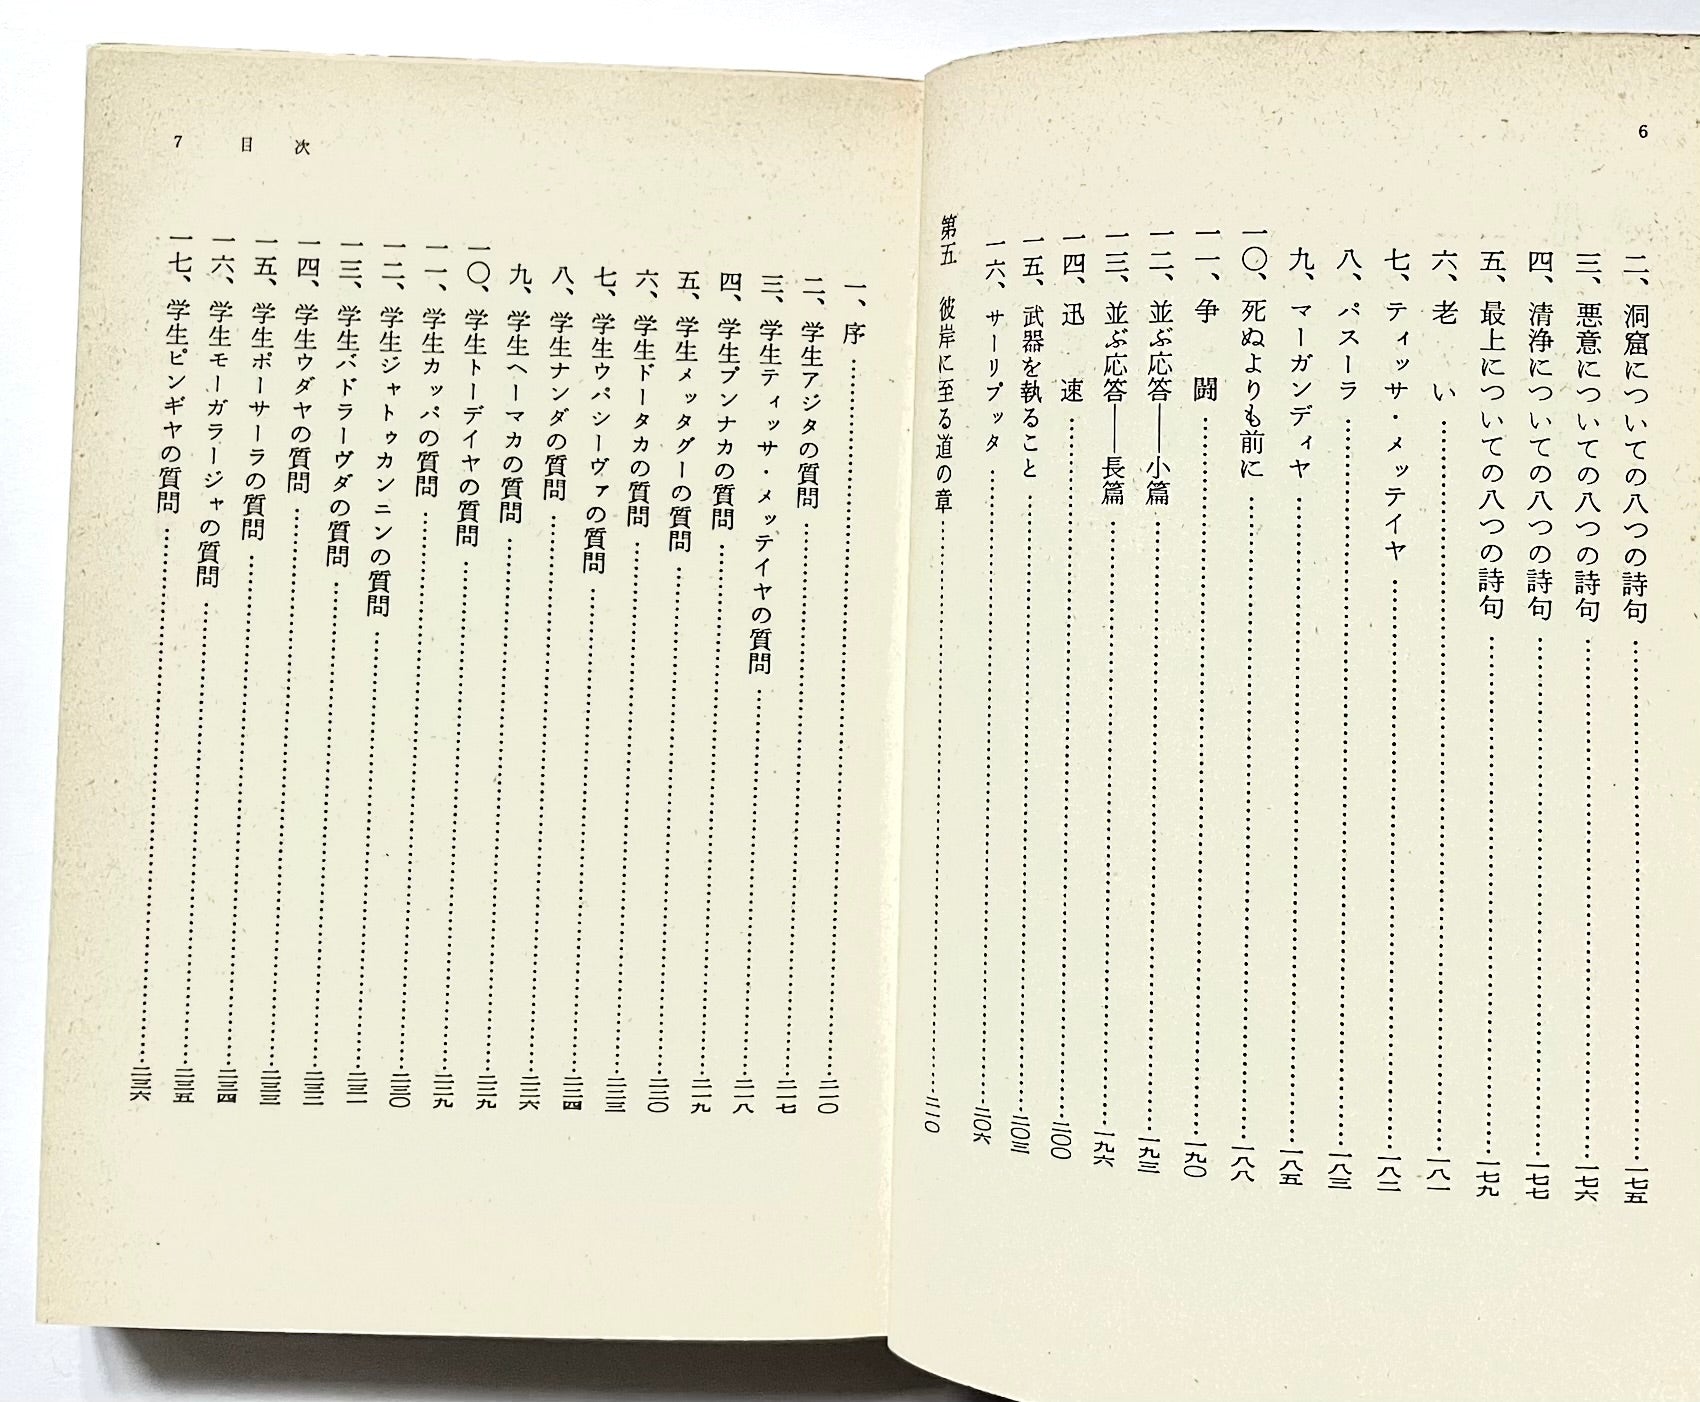 6
二、洞窟についての八つの詩句……一七五
三、悪意についての八つの詩句……一七六
四、清浄についての八つの詩句……一七七
五、最上についての八つの詩句……一七九
六、老い……一八一
七、ティッサ・メッテイヤ……一八二
八、パスーラ……一八三
九、マーガンディヤ……一八五
一〇、死ぬよりも前に……一八八
一一、争闘……一九〇
一二、並ぶ応答——小篇……一九三
一三、並ぶ応答——長篇……一九六
一四、迅速……二〇〇
一五、武器を執ること……二〇三
一六、サーリプッタ……二〇六
第五 彼岸に至る道の章……二一〇
7 目次
一、序……二一〇
二、学生アジタの質問……二一七
三、学生ティッサ・メッテイヤの質問……二一八
四、学生プンナカの質問……二一九
五、学生メッタグーの質問……二二〇
六、学生ドータカの質問……二二三
七、学生ウパシーヴァの質問……二二四
八、学生ナンダの質問……二二六
九、学生ヘーマカの質問……二二九
一〇、学生トーデイヤの質問……二二九
一一、学生カッパの質問……二三〇
一二、学生ジャトゥカンニンの質問……二三一
一三、学生バドラーヴダの質問……二三二
一四、学生ウダヤの質問……二三三
一五、学生ポーサーラの質問……二三四
一六、学生モーガラージャの質問……二三五
一七、学生ピンギヤの質問……二三六